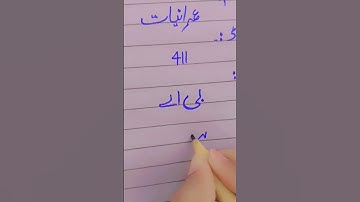 عمرانیات
411
بی اے